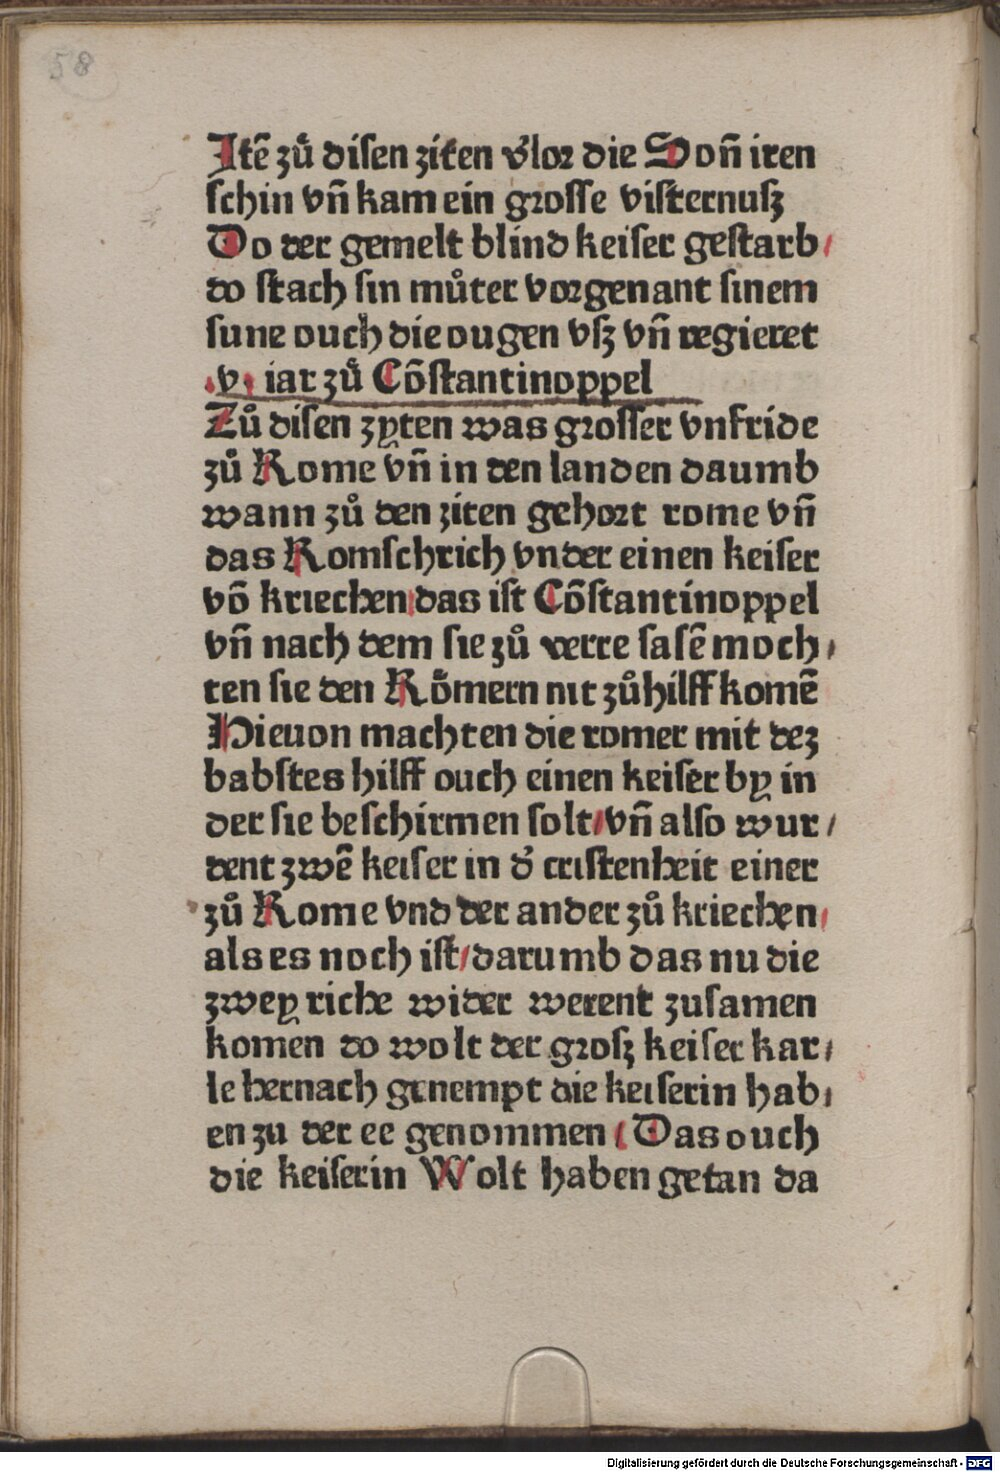 58
Jtē zů disen ziten v̓lor die Son̄ iren
schin vn̄ kam ein grosse visternusz
Do der gemelt blind keiser gestarb/
do stach sin můter vorgenant sinem
sune ouch die ougen vsz vn̄ regieret
.v. iar zů Cōstantinoppel
Zů disen zyten was grosser vnfride
zů Rome vn̄ in den landen daumb
wann zů den ziten gehort rome vn̄
das Romschrich vnder einen keiser
vō kriechen/das ist Cōstantinoppel
vn̄ nach dem sie zů verre sasē moch/
ten sie den Rőmern nit zůhilff komē
Hieuon machten die romer mit dez
babstes hilff ouch einen keiser by in
der sie beschirmen solt/vn̄ also wur/
dent zwē keiser in d̓ cristenheit einer
zů Rome vnd der ander zů kriechen/
als es noch ist/darumb das nu die
zwey riche wider werent zusamen
komen do wolt der grosz keiser kar/
le hernach genempt die keiserin hab/
en zu der ee genommen/Das ouch
die keiserin Wolt haben getan da
Digitalisierung gefördert durch die Deutsche Forschungsgemeinschaft - DFG